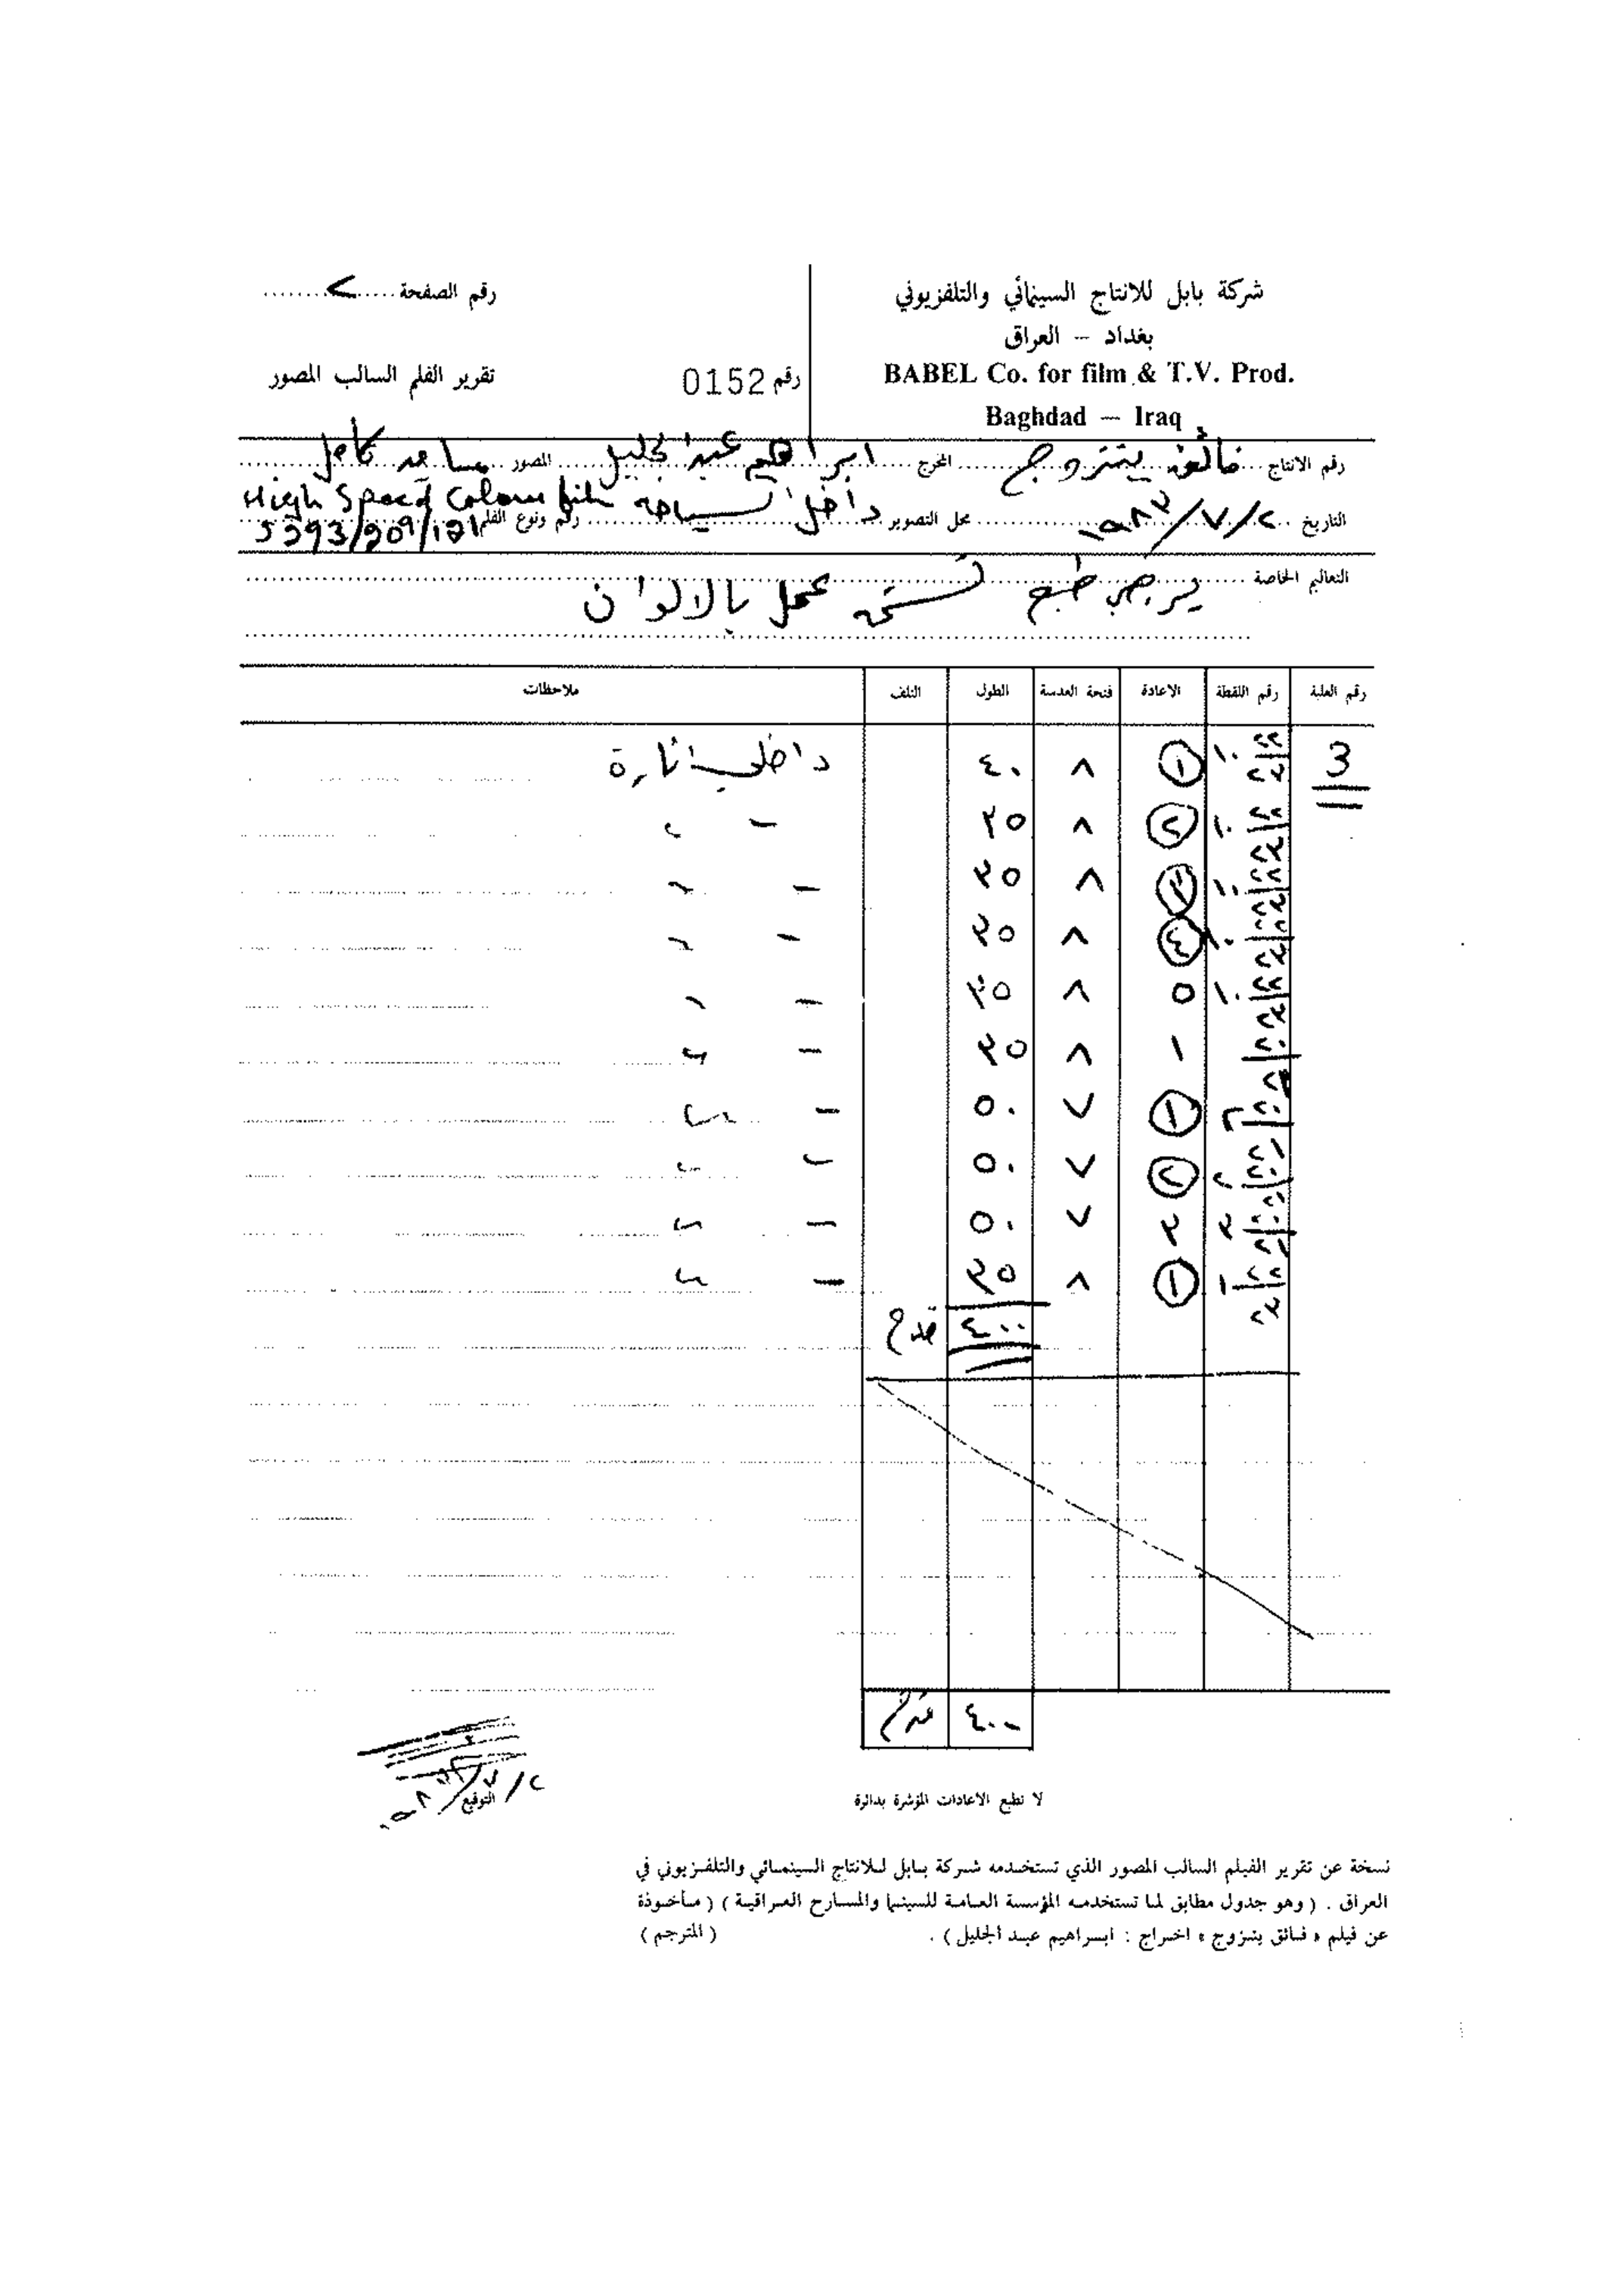 شركة بابل للانتاج السينمائي والتلفزيوني
بغداد – العراق
BABEL Co. for film & T.V. Prod.
Baghdad — Iraq
رقم الصفحة ٢
رقم 0152
تقرير الفلم السالب المصور
رقم الانتاج فائق يتزوج المخرج ابراهيم عبد الجليل المصور ساعد كامل
التاريخ ٢/٧/١٩٨٣ محل التصوير داخل رقم ونوع الفلم High Speed Colour film
5293/209/121
التعاليم الخاصة يرجى طبع نسخة عمل بالالوان
رقم العلبة رقم اللقطة الاعادة فتحة العدسة الطول التلف ملاحظات
3 ١٠ ١ ٨ ٤٠ داخلي انارة
١٠ ٢ ٨ ٣٥
١٠ ٣ ٨ ٣٥
١٠ ٤ ٨ ٣٥
١٠ ٥ ٨ ٣٥
١ ٨ ٣٥
١ ٧ ٥٠
٢ ٧ ٥٠
٣ ٧ ٥٠
١ ١ ٨ ٣٥
٤٠٠ قدم
٤٠٠ قدم
التوقيع ٢/٧/١٩٨٣
لا تطبع الاعادات المؤشرة بدائرة
نسخة عن تقرير الفيلم السالب المصور الذي تستخدمه شركة بابل للانتاج السينمائي والتلفزيوني في
العراق . ( وهو جدول مطابق لما تستخدمه المؤسسة العامة للسينما والمسارح العراقية ) ( مأخوذة
عن فيلم « فائق يتزوج » اخراج : ابراهيم عبد الجليل ) . ( المترجم )